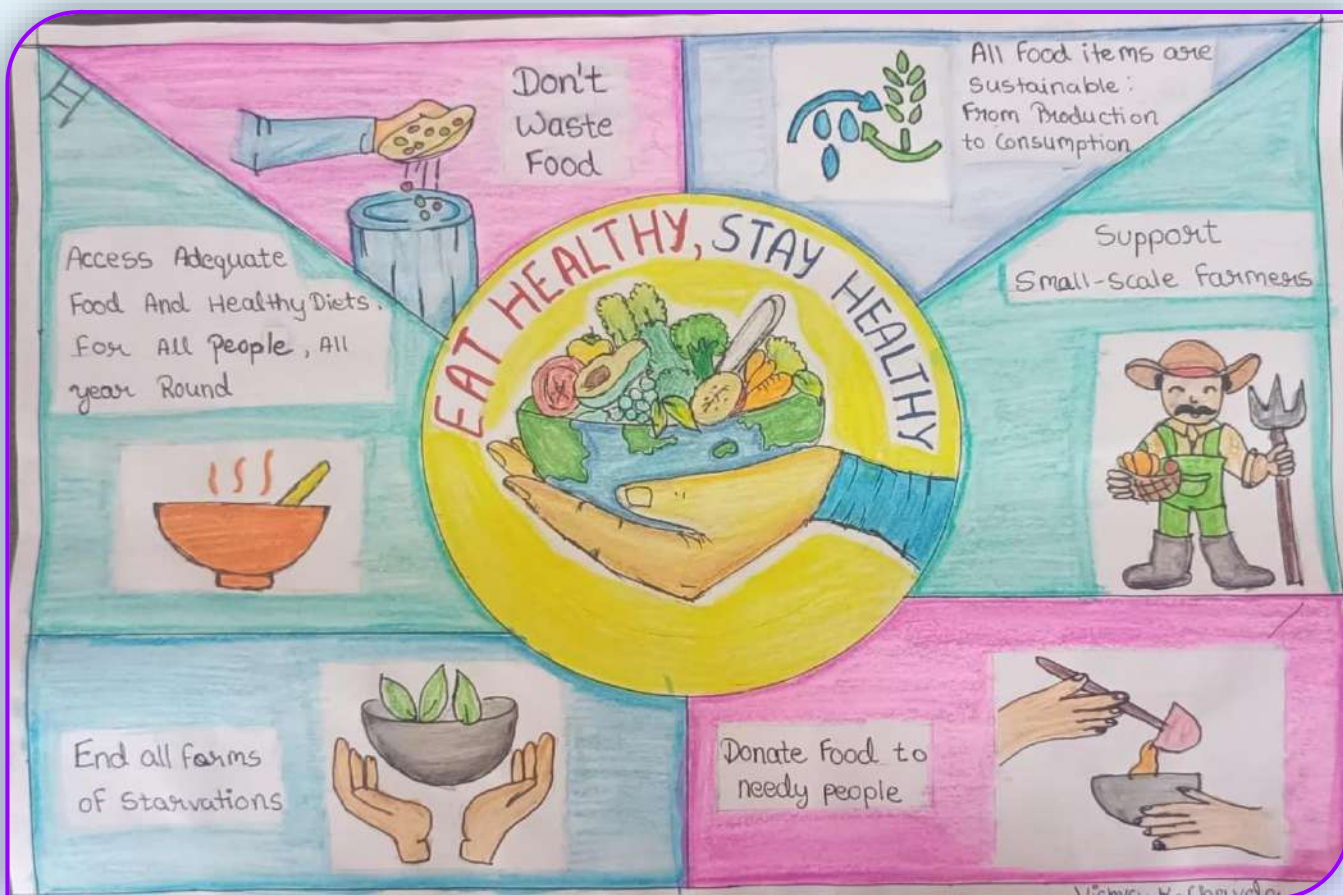 Don't
Waste
Food
All food items are
Sustainable:
From Production
to Consumption
Access Adequate
Food And Healthy Diets.
For All People, All
year Round
EAT HEALTHY, STAY HEALTHY
Support
Small-Scale Farmers
End all forms
of Starvations
Donate Food to
needy people